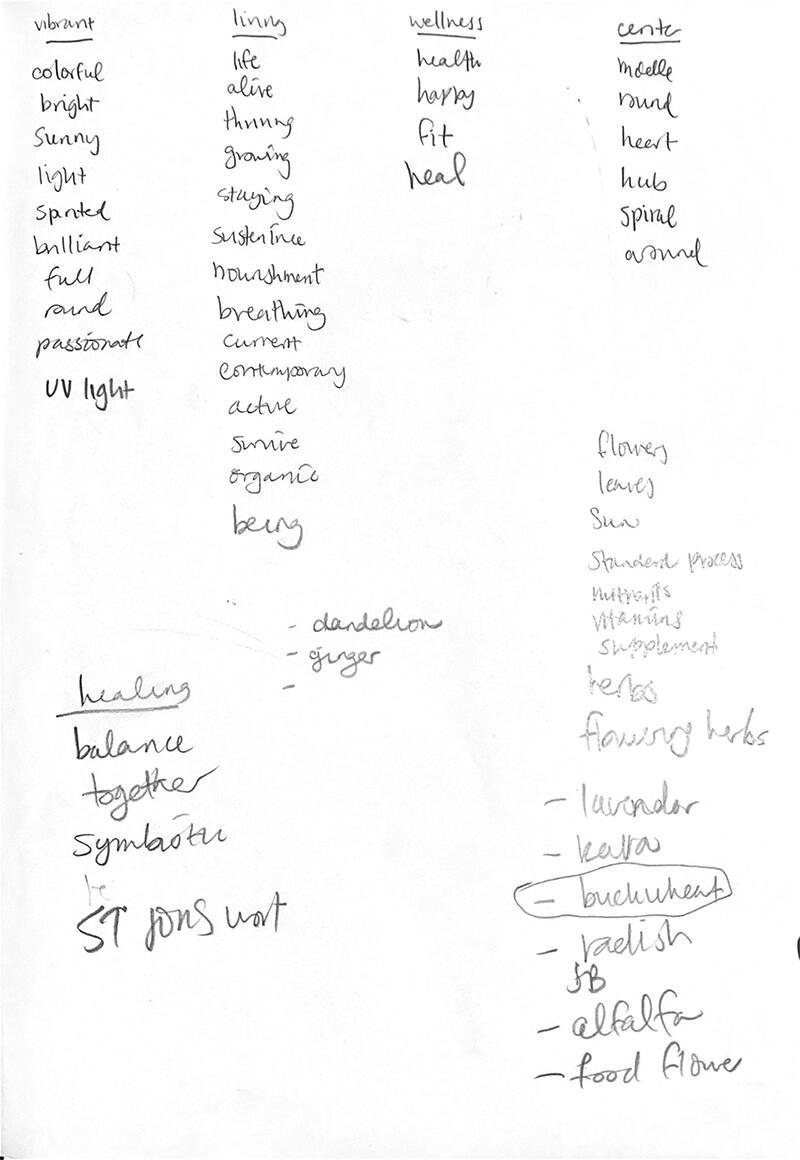 vibrant
colorful
bright
sunny
light
spirited
brilliant
full
round
passionate
UV light
living
life
alive
thriving
growing
staying
sustenance
nourishment
breathing
current
contemporary
active
survive
organic
being
wellness
health
happy
fit
heal
center
middle
round
heart
hub
spiral
around
- dandelion
- ginger
-
healing
balance
together
symbiotic
ST jons wort
flowers
leaves
sun
standard process
nutrients
vitamins
supplement
herbs
flowering herbs
- lavender
- kava
- buckwheat
- radish
- alfalfa
- food flower